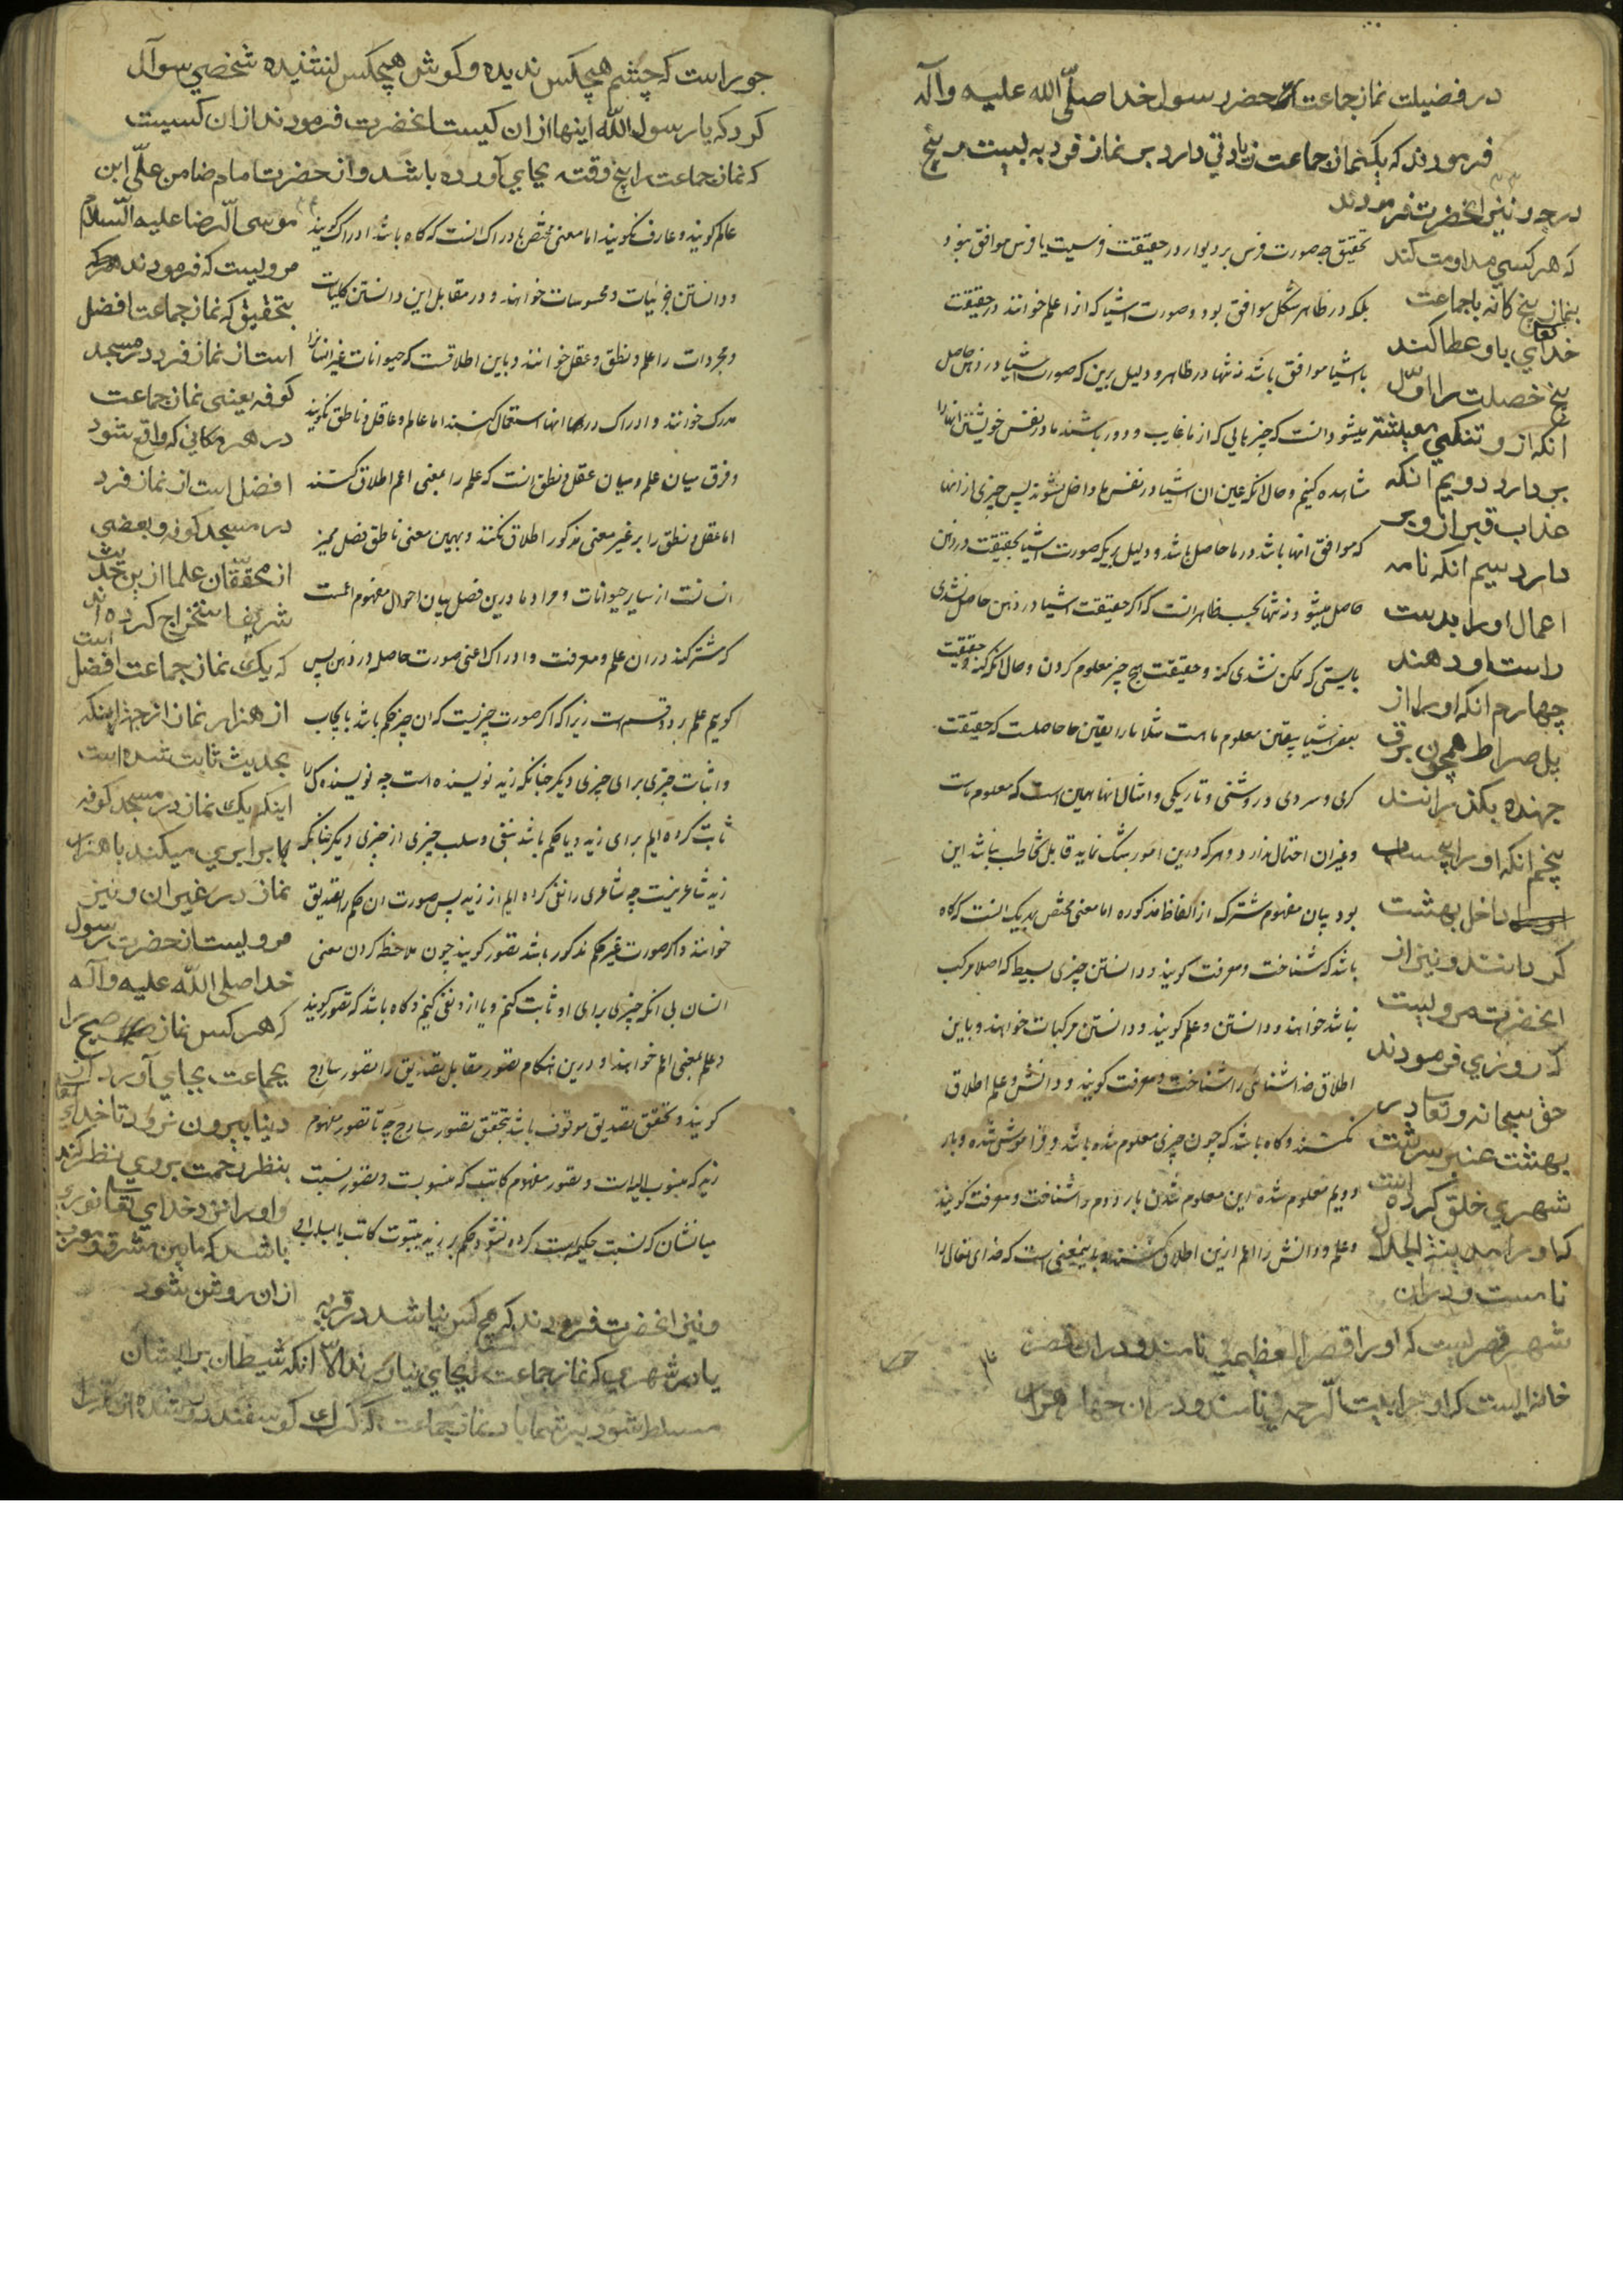 در فضیلت نماز جماعت حضرر سول خدا صلّی الله علیه وآله
فرمودند که یکنماز جماعت زیادتی دارد بر نماز فرد به بیست و پنج
درجه و نیز انحضرت فرمودند
که هر کسی مداومت کند
بنماز پنج کانه با جماعت
خدای تعا باو عطا کند
پنج خصلت را اوّل
انکه از و تنکی معیشت
بر دارد دویم انکه
عذاب قبر از وبر
دارد سیم انکه نامه
اعمال او را بدست
راست او دهند
چهارم انکه او را از
پل صراط همچون برق
جهنده بکذرانند
پنجم انکه او را بیحساب
داخل بهشت
کردانند و نیز از
انحضرت مرویست
که روزی فرمودند
حق سبحانه و تعا در
بهشت عنبر سرشت
شهری خلق کرده است
که او را مدینة الجلال
نامست و دران
شهر قصریست که او را قصر العظیمة نامند و دران قصر
خانه ایست که او را بیت الرّحمة نامند و دران چهار هزار
تحقیق چه صورت فرس بر دیوار در حقیقت فرسیت یا فرس موافق نبود
بلکه در ظاهر شکل موافق بود و صورت اشیا که انرا علم خوانند در حقیقت
با اشیا موافق باشد نه تنها در ظاهر و دلیل برین که صورت اشیا در ذهن حاصل
میشود انست که چیزهایی که از ما غایب و دور باشند ما در نفس خویشتن انها را
مشاهده کنیم و حال انکه عین ان اشیا در نفس ما داخل نشوند پس چیزی از انها
که موافق انها باشد در ما حاصل باشد و دلیل بر یکه صورت اشیا بحقیقت در ذهن
حاصل میشود نه تنها بحسب ظاهر انست که اکر حقیقت اشیا در ذهن حاصل نشدی
بایستی که ممکن نشدی کنه و حقیقت هیچ چیز معلوم کردن و حال انکه کنه و حقیقت
بعضی اشیا بیقین معلوم ماست مثلا ما را یقین ما حاصلست که حقیقت
کرمی و سردی و روشنی و تاریکی و امثال انها همین است که معلوم ماست
وغیر ان احتمال ندارد و هر که درین امور شک نماید قابل مخاطب نباشد این
بود بیان مفهوم مشترک از الفاظ مذکوره اما معنی مختص بهر یک انست که کاه
باشد که شناخت و معرفت کویند و دانستن چیزی بسیط که اصلا مرکب
نباشد خواهند و دانستن و علم کویند و دانستن مرکبات خواهند و باین
اطلاق خدا شناسی را شناخت و معرفت کویند و دانش و علم اطلاق
نکنند و کاه باشد که چون چیزی معلوم شده باشد و فراموش شده و بار
دویم معلوم شده این معلوم شدن بار دوم را شناخت و معرفت کویند
و علم و دانش را اعم ازین اطلاق کنند و بدینمعنی است که خدای تعالی را
جو براست که چشم هیچکس ندیده و کوش هیچکس نشنیده شخصی سوآل
کرد که یا رسول اللّه اینها از ان کیست انحضرت فرمودند از ان کسیست
که نماز جماعت را پنج وقته بجای آورده باشد و از حضرت امام ضامن علّی ابن
موسی الّرضا علیه السّلام
مرویست که فرمودند
بتحقیق که نماز جماعت افضل
است از نماز فرد در مسجد
کوفه یعنی نماز جماعت
در هر مکانی که واقع شود
افضل است از نماز فرد
در مسجد کوفه و بعضی
از محقّقان علما ازین حدیث
شریف استخراج کرده اند
که یک نماز جماعت افضل است
از هزار نماز از جهت اینکه
بحدیث ثابت شده است
اینکه یک نماز در مسجد کوفه
برابری میکند با هزار
نماز در غیر ان و نیز
مرویست از حضرت رسول
خدا صلی اللّه علیه وآله
که هر کس نماز صبح را
بجماعت بجای آورد از
دینا بیرون نرود تا خدای تعا
بنظر رحمت بروی نظر کند
و او را نزد خدای تعا نوری
باشد که مابین مشرق و مغرب
از ان روشن شود
عالم کویند و عارف نکویند اما معنی مختص بادراک انست که کاه باشد ادراک کویند
و دانستن جزئیات و محسوسات خواهند و در مقابل این دانستن کلیات
و مجردات را علم و نطق و عقل خوانند و باین اطلاقست که حیوانات غیر انسانرا
مدرک خوانند و ادراک در انها استعمال کنند اما عالم و عاقل و ناطق نکویند
و فرق میان علم و میان عقل و نطق انست که علم را بمعنی اعم اطلاق کنند
اما عقل و نطق را بر غیر معنی مذکور اطلاق نکنند و بهمین معنی ناطق فصل ممیز
انسانست از سایر حیوانات و مراد ما درین فصل بیان احوال مفهوم اعمست
که مشترکند در ان علم و معرفت و ادراک اعنی صورت حاصله در ذهن پس
کویم علم بر دو قسم است زیرا که اکر صورت چیزیست که ان چیز حکم باشد بایجاب
و اثبات چیزی برای چیزی دیکر چنانکه زید نویسنده است چه نویسندکی را
ثابت کرده ایم برای زید و یا حکم باشد بنفی و سلب چیزی از چیزی دیکر چنانکه
زید شاعر نیست چه شاعری را نفی کرده ایم از زید پس صورت ان حکم را تصدیق
خوانند و اکر صورت غیر حکم مذکور باشد تصور کویند چون ملاحظه کردن معنی
انسان بی انکه چیزی برای او ثابت کنم و یا از و نفی کنیم و کاه باشد که تصور کویند
و علم بمعنی اعم خواهند و درین هنکام تصور مقابل تصدیق را تصور ساذج
کویند و تحقق تصدیق موقوف باشد بتحقق تصور ساذج چه تا تصور مفهوم
زید که منسوب الیه است و تصور مفهوم کاتب که منسوبست و تصور نسبت
میانشان که نسبت حکمیه است کرده نشود حکم بر زید بثبوت کاتب یا بسلب
و نیز انحضرت فرمودند که هیچ کس نباشد در قریه
یا در شهری که نماز جماعت بجای نیاورند الّا انکه شیطان بر ایشان
مسلط شود بر شما باد نماز جماعت که کرک کوسفند